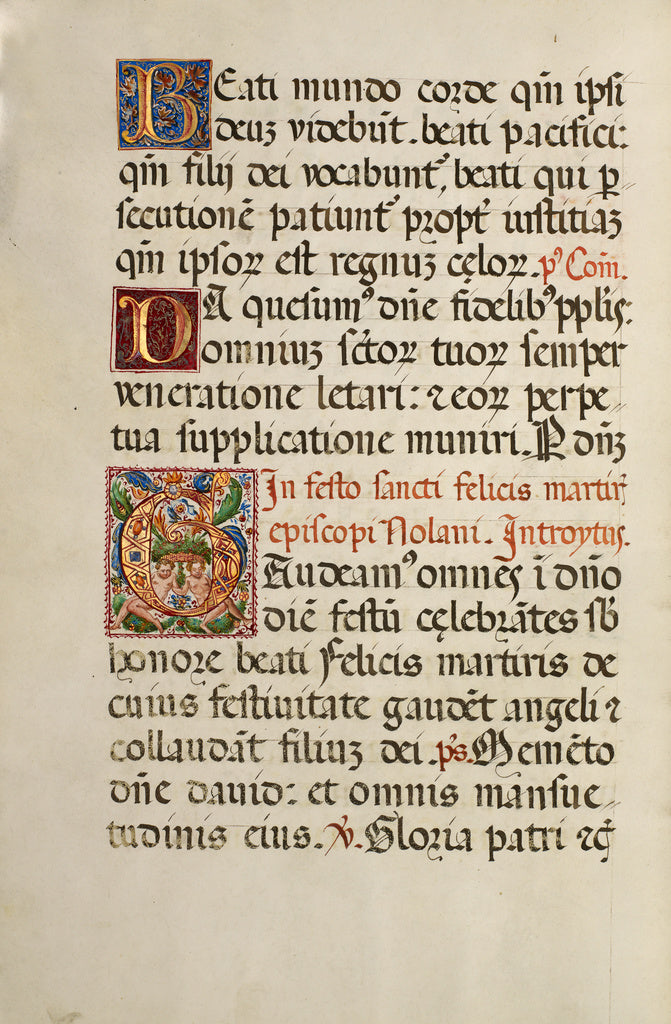 Beati mundo corde qm̄ ipsi
deuȝ videbūt. beati pacifici:
qm̄ filij dei vocabuntᷣ, beati qui ꝑ-
secutionē patiuntᷣ propt̄ iustitiaȝ
qm̄ ipsoꝝ est regnuȝ cęloꝝ. pꝰ Com̄.
DA quesumꝰ dn̄e fidelibꝰ pplīs:
omniuȝ sc̄toꝝ tuoꝝ semper
veneratione letari: ⁊ eoꝝ perpe-
tua supplicatione muniri. P dn̄ȝ
In festo sancti felicis martir̄
episcopi Nolani. Introytus.
GAudeamꝰ omnes ī dn̄o
diē festū cęlebrātes sb̄
honore beati Felicis martiris de
cuius festiuitate gaudēt angeli ⁊
collaudāt filiuȝ dei. ps. Memēto
dn̄e dauid: et omnis mansue-
tudinis eius. ℣. Gloria patri ⁊c̄